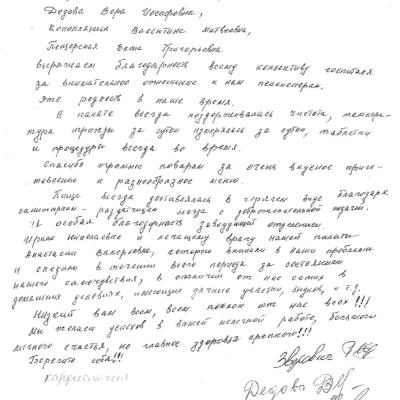 Дедова Вера Иосифовна,
Коноплянин Валентина Матвеевна,
Пещерская Елена Григорьевна
выражаем благодарность всему коллективу госпиталя
за внимательное отношение к нам пенсионерам.
Это редкость в наше время.
В палате всегда поддерживалась чистота, темпера-
тура трижды за сутки измерялась за сутки, таблетки
и процедуры всегда во время.
Спасибо огромное поварам за очень вкусное приго-
товление и разнообразное меню.
Пища всегда доставлялась в горячем виде благодаря
санитаркам - раздатчикам всегда с доброжелательной подачей.
И особая благодарность заведующей отделением
Ирине Николаевне и лечащему врачу нашей палаты
Анастасии Валерьевне, которые вникали в наши проблемы
и следили в течении всего периода за состоянием
нашего самочувствия, в отличии от нас самих в
домашних условиях, имеющие дачные участки, внуков, и т.д.
Низкий вам всем, всем поклон от нас всех!!!
Мы желаем успехов в вашей нелегкой работе, большого
личного счастья, но главное здоровья крепкого!!!
Берегите себя!!!
кардиология
Дедова В.И.